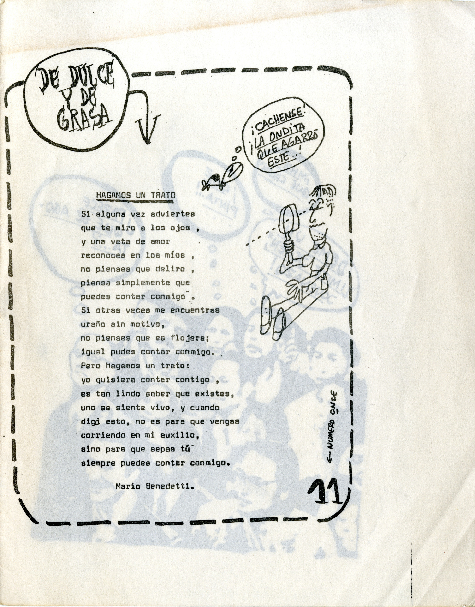 DE DULCE
Y DE
GRASA
¡CACHENSE!
¡LA ONDITA
QUE AGARRÓ
ESTE...!
HAGAMOS UN TRATO
Si alguna vez adviertes
que te miro a los ojos ,
y una veta de amor
reconoces en los míos ,
no pienses que deliro ,
piensa simplemente que
puedes contar conmigo .
Si otras veces me encuentras
uraño sin motivo,
no pienses que es flojera;
igual pudes contar conmigo.
Pero hagamos un trato:
yo quisiera contar contigo ,
es tan lindo saber que existes,
uno se siente vivo, y cuando
digi esto, no es para que vengas
corriendo en mi auxilio,
sino para que sepas tú
siempre puedes contar conmigo.
Mario Benedetti.
← NUMERO ONCE
11